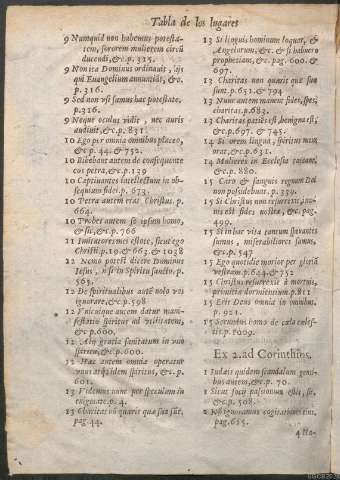 Tabla de los lugares
9 Numquid non habemus potesta-
tem, sororem mulierem circũ
ducendi, &c. p. 315.
9 Non ita Dominus ordinavit, ijs
qui Euangelium annuntiãt, &c.
p. 316.
9 Sed non vsi sumus hac potestate,
p. 316.
9 Neque oculus vidit, nec auris
audiuit, &c. p. 831.
10 Ego per omnia omnibus placeo,
&c. p. 44. & 752.
10 Bibebant autem de consequente
eos petra, &c. p. 139
10 Captiuantes intellectum in ob-
sequium fidei. p. 673.
10 Petra autem erat Christus. p.
664.
10 Probet autem se ipsum homo,
& sic, &c. p. 766
11 Imitatores mei estote, sicut ego
Christi. p. 19. & 663. & 1038
12 Nemo potest dicere Dominus
Iesus, nisi in Spiritu sancto. p.
565.
12 De spiritualibus autẽ nolo vos
ignorare, &c. p. 598
12 Vnicuique autem datur mani-
festatio spiritus ad vtilitatem,
&c. p. 600.
12 Alij gratia sanitatum in vno
spiritu, &c. p. 600.
12 Hæc autem omnia operatur
vnus atq; idem spiritus, &c. p.
601.
13 Videmus nunc per speculum in
enigmate. p. 4.
13 Charitas nõ quærit quæ sua sũt,
pag. 44.
13 Si linguis hominum loquar, &
Angelorum, &c. & si habuero
prophetiam, &c. pag. 600. &
697.
13 Charitas non quærit quæ sua
sunt. p. 631. & 794
13 Nunc autem manent fides, spes,
charitas. p. 682.
13 Charitas patiẽs est, benigna est,
&c. p. 697. & 745.
14 Si orem lingua, spiritus meus
orat, &c. p. 631.
14 Mulieres in Ecclesia taceant,
&c. p. 880.
15 Caro & sanguis regnum Dei
non possidebunt. p. 339.
15 Si Christus non resurrexit, ina-
nis est fides nostra, &c. pag.
499.
15 Si in hac vita tantum sperantes
sumus, miserabiliores sumus,
&c. p. 547
15 Ego quotidie morior per gloriã
vestram. p. 644. & 752
15 Christus resurrexit à mortuis,
primitiæ dormientium. p. 811
15 Erit Deus omnia in omnibus.
p. 921.
15 Secundus homo de cælo cæles-
tis. p. 1009.
Ex 2. ad Corinthios.
1 Iudæis quidem scandalum gen-
tibus autem, &c. p. 70.
1 Sicut socij passionum estis, sic,
&c. p. 508.
2 Nõ ignoramus cogitationes eius,
pag. 655.